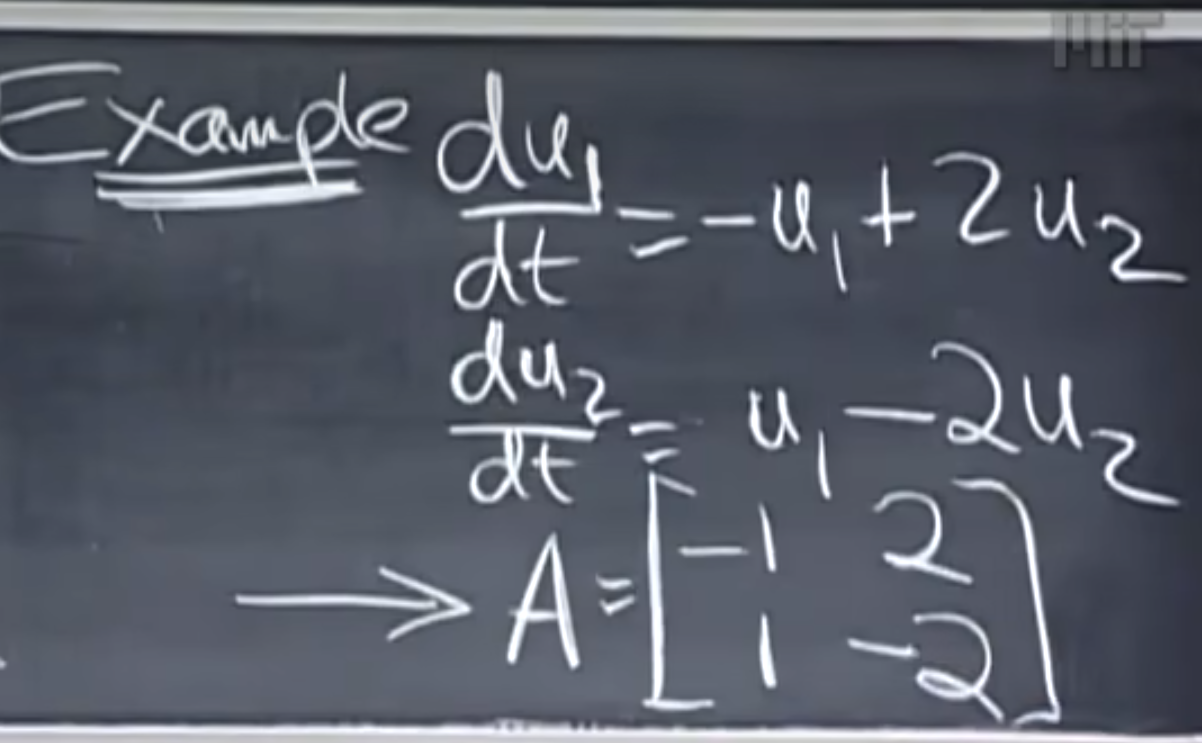 MIT
Example du₁/dt = -u₁ + 2u₂
du₂/dt = u₁ - 2u₂
→ A = [-1 2
1 -2]